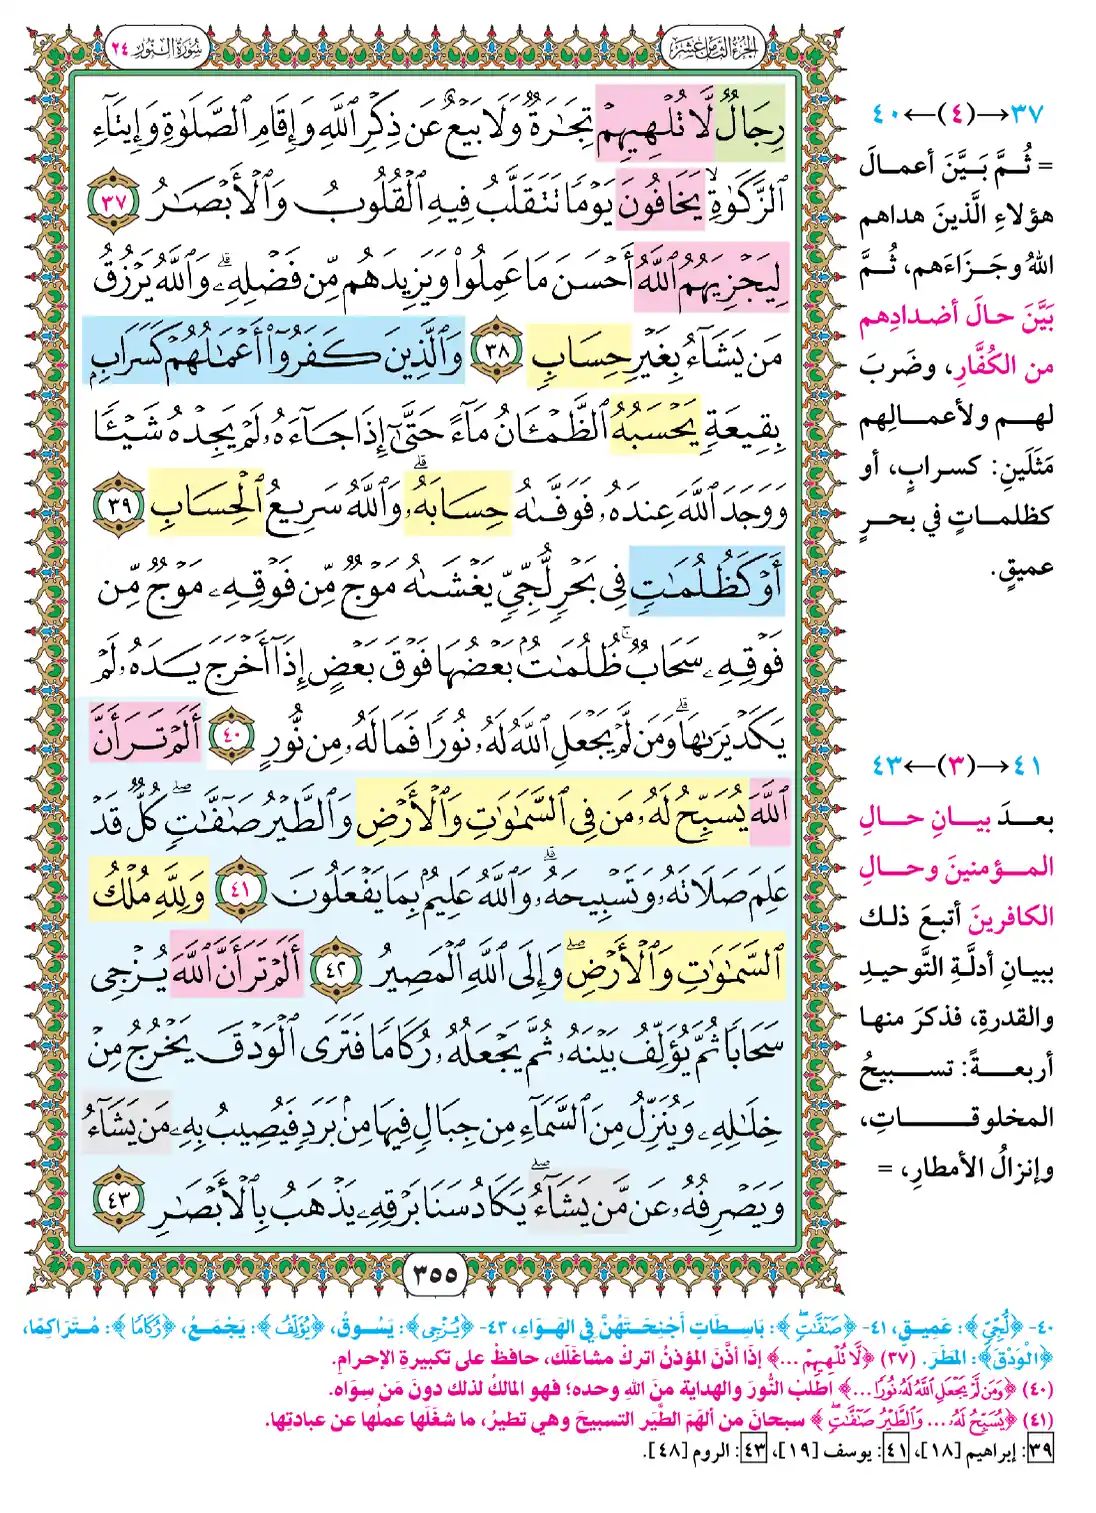 الجزء الثامن عشر
سورة النور ٢٤
رِجَالٌ لَّا تُلْهِيهِمْ تِجَـٰرَةٌ وَلَا بَيْعٌ عَن ذِكْرِ ٱللَّهِ وَإِقَامِ ٱلصَّلَوٰةِ وَإِيتَآءِ
ٱلزَّكَوٰةِ ۙ يَخَافُونَ يَوْمًا تَتَقَلَّبُ فِيهِ ٱلْقُلُوبُ وَٱلْأَبْصَـٰرُ ٣٧
لِيَجْزِيَهُمُ ٱللَّهُ أَحْسَنَ مَا عَمِلُوا۟ وَيَزِيدَهُم مِّن فَضْلِهِۦ ۗ وَٱللَّهُ يَرْزُقُ
مَن يَشَآءُ بِغَيْرِ حِسَابٍ ٣٨ وَٱلَّذِينَ كَفَرُوٓا۟ أَعْمَـٰلُهُمْ كَسَرَابٍۭ
بِقِيعَةٍ يَحْسَبُهُ ٱلظَّمْـَٔانُ مَآءً حَتَّىٰٓ إِذَا جَآءَهُۥ لَمْ يَجِدْهُ شَيْـًٔا
وَوَجَدَ ٱللَّهَ عِندَهُۥ فَوَفَّىٰهُ حِسَابَهُۥ ۗ وَٱللَّهُ سَرِيعُ ٱلْحِسَابِ ٣٩
أَوْ كَظُلُمَـٰتٍ فِى بَحْرٍ لُّجِّىٍّ يَغْشَىٰهُ مَوْجٌ مِّن فَوْقِهِۦ مَوْجٌ مِّن
فَوْقِهِۦ سَحَابٌ ۚ ظُلُمَـٰتٌۢ بَعْضُهَا فَوْقَ بَعْضٍ إِذَآ أَخْرَجَ يَدَهُۥ لَمْ
يَكَدْ يَرَىٰهَا ۗ وَمَن لَّمْ يَجْعَلِ ٱللَّهُ لَهُۥ نُورًا فَمَا لَهُۥ مِن نُّورٍ ٤٠ أَلَمْ تَرَ أَنَّ
ٱللَّهَ يُسَبِّحُ لَهُۥ مَن فِى ٱلسَّمَـٰوَٰتِ وَٱلْأَرْضِ وَٱلطَّيْرُ صَـٰٓفَّـٰتٍ ۖ كُلٌّ قَدْ
عَلِمَ صَلَاتَهُۥ وَتَسْبِيحَهُۥ ۗ وَٱللَّهُ عَلِيمٌۢ بِمَا يَفْعَلُونَ ٤١ وَلِلَّهِ مُلْكُ
ٱلسَّمَـٰوَٰتِ وَٱلْأَرْضِ ۖ وَإِلَى ٱللَّهِ ٱلْمَصِيرُ ٤٢ أَلَمْ تَرَ أَنَّ ٱللَّهَ يُزْجِى
سَحَابًا ثُمَّ يُؤَلِّفُ بَيْنَهُۥ ثُمَّ يَجْعَلُهُۥ رُكَامًا فَتَرَى ٱلْوَدْقَ يَخْرُجُ مِنْ
خِلَـٰلِهِۦ وَيُنَزِّلُ مِنَ ٱلسَّمَآءِ مِن جِبَالٍ فِيهَا مِنۢ بَرَدٍ فَيُصِيبُ بِهِۦ مَن يَشَآءُ
وَيَصْرِفُهُۥ عَن مَّن يَشَآءُ ۖ يَكَادُ سَنَا بَرْقِهِۦ يَذْهَبُ بِٱلْأَبْصَـٰرِ ٤٣
٣٥٥
٣٧→(٤)←٤٠
= ثُمَّ بَيَّنَ أعمالَ
هؤلاءِ الَّذينَ هداهم
اللهُ وجَزَاءَهم، ثُمَّ
بَيَّنَ حالَ أضدادِهم
من الكُفَّارِ، وضَربَ
لهم ولأعمالِهم
مَثَلَينِ: كسرابٍ، أو
كظلماتٍ في بحرٍ
عميقٍ.
٤١→(٣)←٤٣
بعدَ بيانِ حالِ
المؤمنينَ وحالِ
الكافرينَ أتبعَ ذلك
ببيانِ أدلَّةِ التَّوحيدِ
والقدرةِ، فذكرَ منها
أربعةً: تسبيحُ
المخلوقاتِ،
وإنزالُ الأمطارِ، =
٤٠- ﴿لُّجِّيٍّ﴾: عَمِيقٍ، ٤١- ﴿صَـٰٓفَّـٰتٍ ۖ﴾: بَاسِطَاتٍ أَجْنِحَتَهُنَّ فِي الهَوَاءِ، ٤٣- ﴿يُزْجِى﴾: يَسُوقُ، ﴿يُؤَلِّفُ﴾: يَجْمَعُ، ﴿رُكَامًا﴾: مُتَرَاكِمًا،
﴿الْوَدْقَ﴾: المَطَرَ. (٣٧) ﴿لَّا تُلْهِيهِمْ ...﴾ إذَا أذَّنَ المؤذنُ اتركْ مشاغلَك، حافظْ على تكبيرةِ الإحرامِ.
(٤٠) ﴿وَمَن لَّمْ يَجْعَلِ ٱللَّهُ لَهُۥ نُورًا ...﴾ اطلبْ النُّورَ والهدايةَ منَ اللهِ وحده؛ فهو المالكُ لذلك دونَ مَن سِوَاه.
(٤١) ﴿يُسَبِّحُ لَهُۥ ... وَٱلطَّيْرُ صَـٰٓفَّـٰتٍ ۖ﴾ سبحانَ من ألهَمَ الطَّيْرَ التسبيحَ وهي تطيرُ، ما شغَلَها عملُها عن عبادتِها.
٣٩: إبراهيم [١٨]، ٤١: يوسف [١٩]، ٤٣: الروم [٤٨].